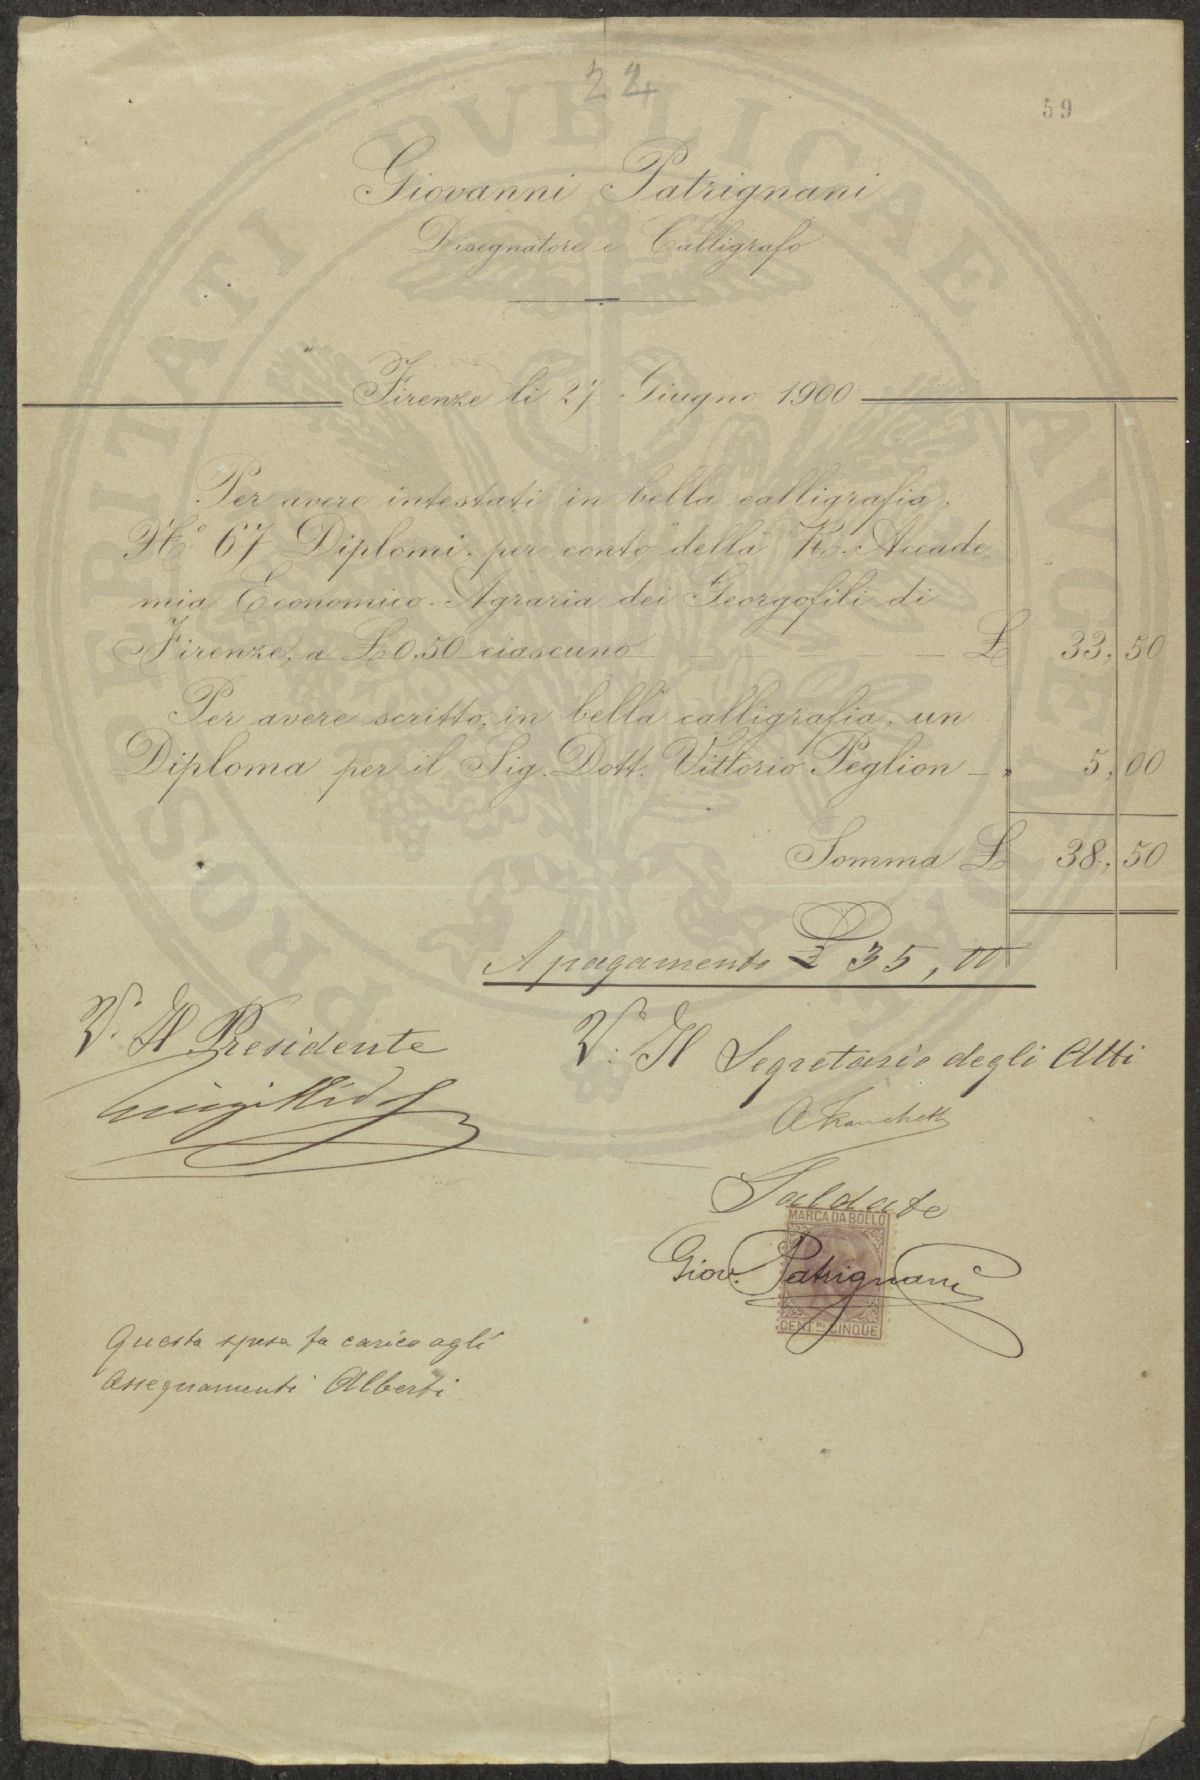 22
59
Giovanni Patrignani
Disegnatore e Calligrafo
Firenze li 27 Giugno 1900
Per avere intestati in bella calligrafia,
N.º 67 Diplomi, per conto della R. Accade-
mia Economico-Agraria dei Georgofili di
Firenze, a £ 0,50 ciascuno £ 33,50
Per avere scritto, in bella calligrafia, un
Diploma per il Sig. Dott. Vittorio Peglion " 5,00
Somma £ 38,50
A pagamento £ 35,00
V. Il Presidente
Luigi
V. Il Segretario degli Atti
A Franchetti
Saldate
MARCA DA BOLLO
Giov. Patrignani
CENT.MI CINQUE
Questa spesa fa carico agli
Assegnamenti Alberti
PROSPERITATI PVBLICAE AVGENDAE